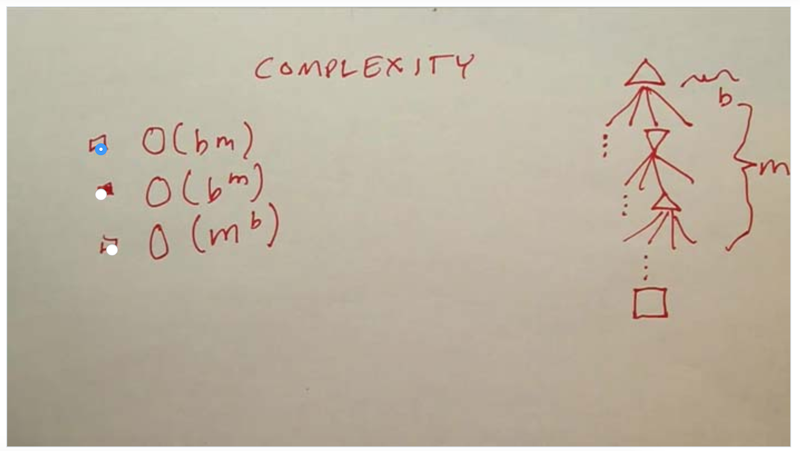 COMPLEXITY
O(bm)
O(b^m)
O(m^b)
b
m